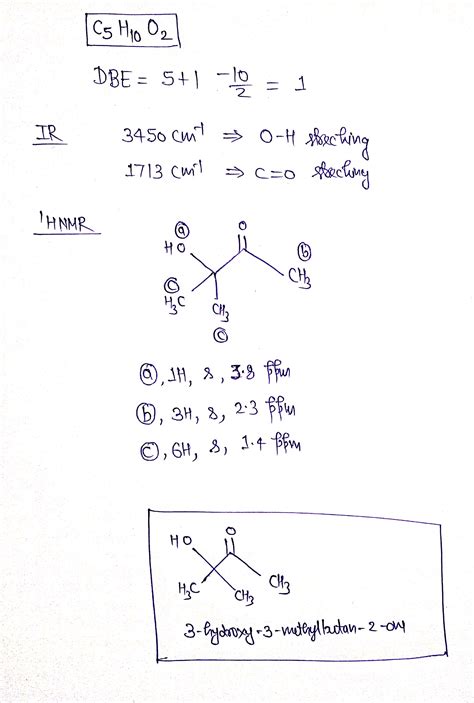 C5 H10 O2
DBE = 5+1 -10/2 = 1
IR 3450 cm-1 ⇒ O-H streching
1713 cm-1 ⇒ C=O streching
1HNMR
(a) O
HO (b)
CH3
(c)
H3C CH3
(c)
(a), 1H, s, 3.8 ppm
(b), 3H, s, 2.3 ppm
(c), 6H, s, 1.4 ppm
HO O
H3C CH3 CH3
3-hydroxy-3-methylbutan-2-one